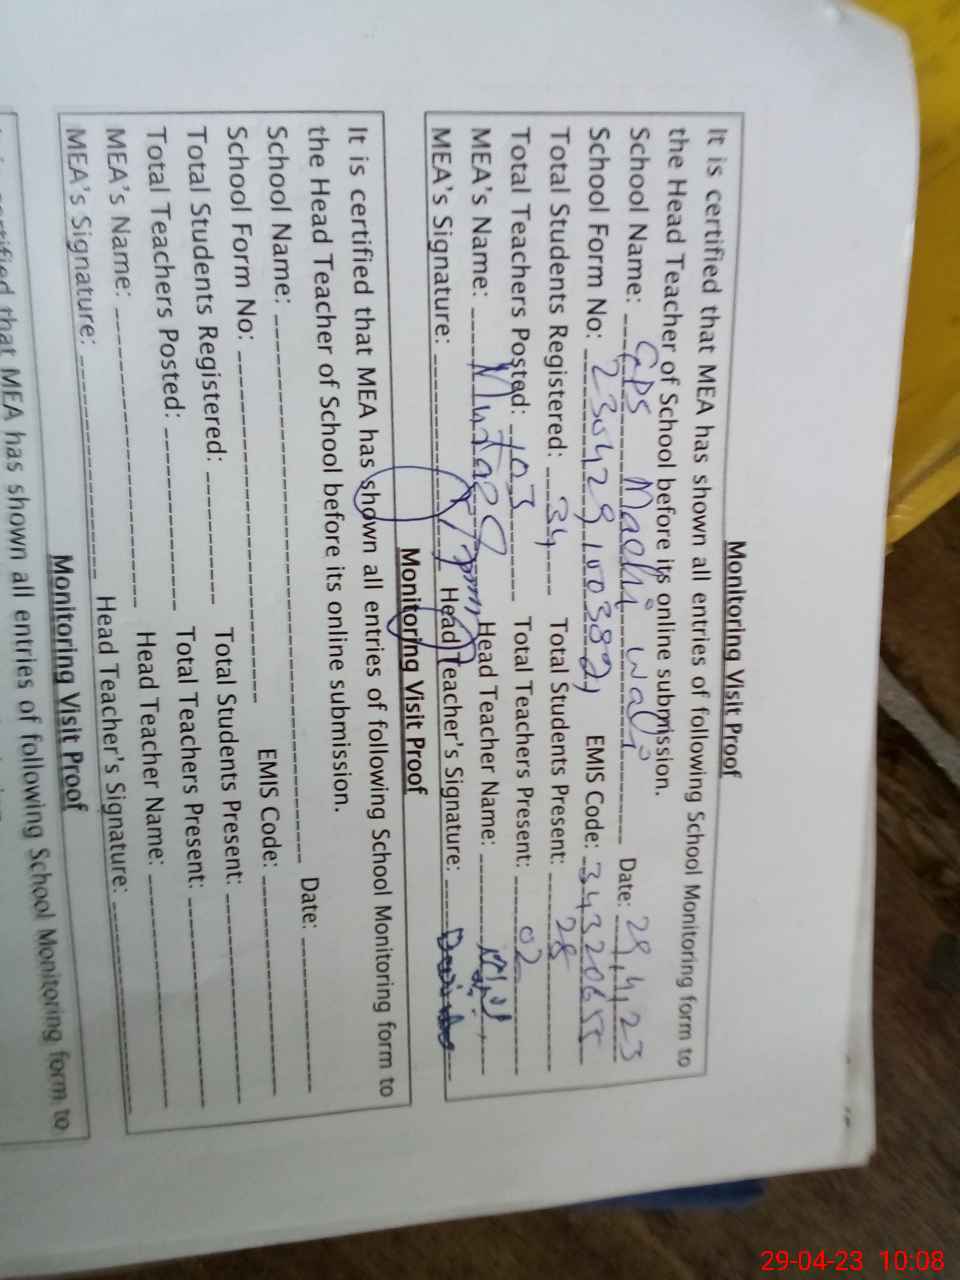 Monitoring Visit Proof
It is certified that MEA has shown all entries of following School Monitoring form to
the Head Teacher of School before its online submission.
School Name: GPS Machi wali Date: 29,4,23
School Form No: EMIS Code: 34320655
Total Students Registered: 34 Total Students Present: 28
Total Teachers Posted: 03 Total Teachers Present: 02
MEA's Name: Head Teacher Name:
MEA's Signature: Head Teacher's Signature:
Monitoring Visit Proof
It is certified that MEA has shown all entries of following School Monitoring form to
the Head Teacher of School before its online submission.
School Name: Date:
School Form No: EMIS Code:
Total Students Registered: Total Students Present:
Total Teachers Posted: Total Teachers Present:
MEA's Name: Head Teacher Name:
MEA's Signature: Head Teacher's Signature:
Monitoring Visit Proof
certified that MEA has shown all entries of following School Monitoring form to
29-04-23 10:08